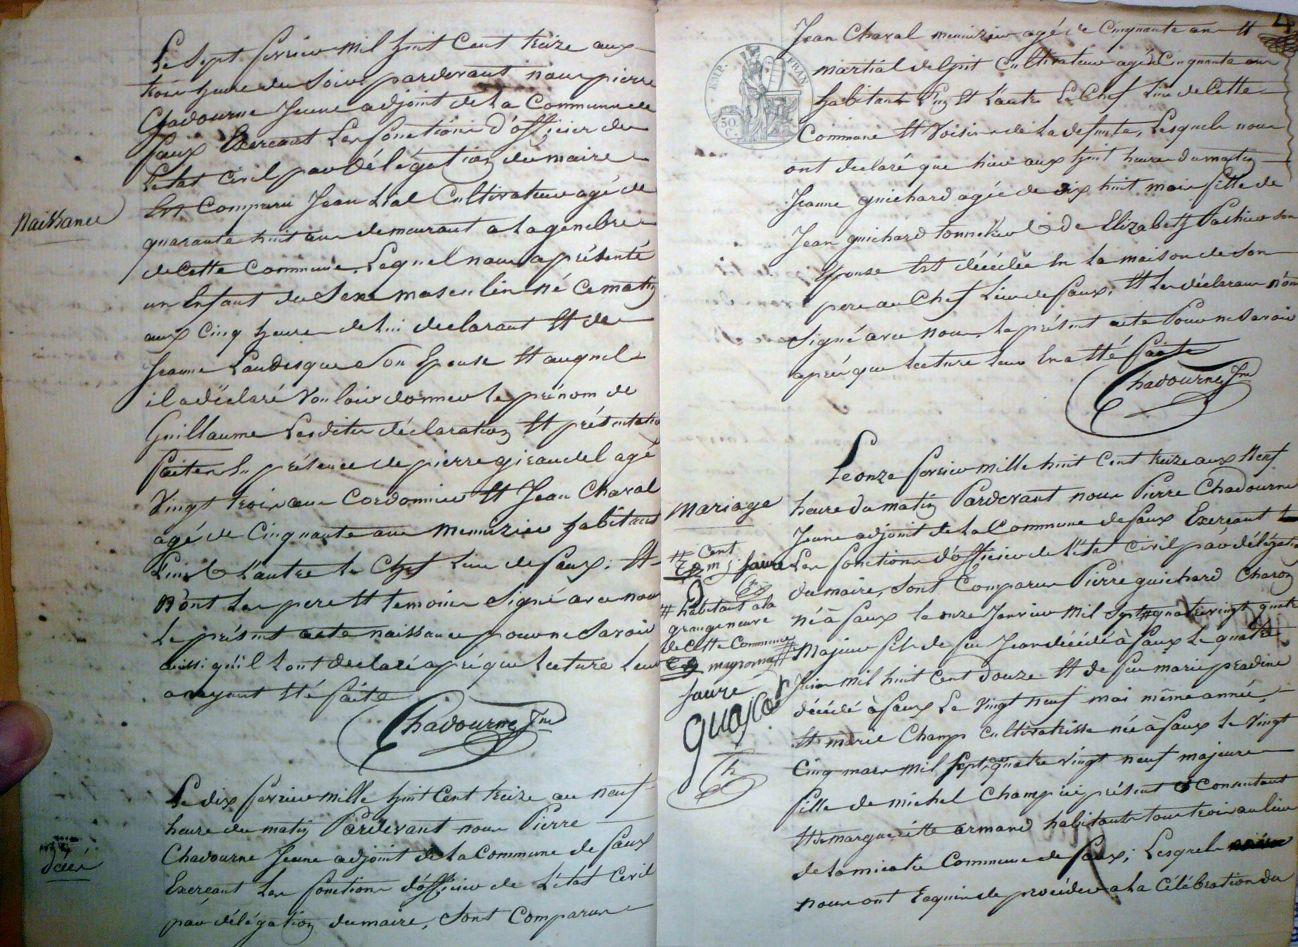 Le Sept fevrier mil huit Cent treize aux
trois heure du Soir pardevant nous pierre
Chadourne Jeune adjoint de La Commune de
faux Exercant Les fonctions d'officier de
L'etat Civil par délégation du maire
Est Comparu Jean Lial Cultivateur agé de
quarante huit ans demeurant a La genebre
de Cette Commune, Lequel nous a présenté
un Enfant du Sexe masculin né Ce matin
aux Cinq heure de lui declarant Et de
Jeanne Landesque Son Epouse Et auquel
il a déclaré Vouloir donner le prénom de
Guillaume Lesdites déclaration Et présentation
faites En présence de pierre giraudel agé
Vingt trois ans Cordonnier Et Jean Chaval
agé de Cinquante ans menuzier habitans
L'un & L'autre Le Chef Lieu de faux, Et
N'ont Les pere Et temoins Signé avec nous
Le présent acte naissance pour ne Savoir
ainsi qu'il L'ont declaré après que Lecture Leur
a eyant Eté faite
Chadourne Jne
Naissance
Le dix fevrier mille huit Cent treize au neuf
heure du matin Pardevant nous Pierre
Chadourne Jeune adjoint de La Commune de faux
Exercant Les fonctions d'officier de L'etat Civil
par délégation du maire, Sont Comparus
décés
4
EMP. FRAN.
50 C.
Jean Chaval menuzier agé de Cinquante ans Et
martial delpit Cultivateur agé Cinquante ans
habitants L'un Et L'autre Le Chef Lieu de Cette
Commune Et Voisins de La defunte, Lesquels nous
ont declaré que hier aux huit heure du matin
Jeanne guichard agée de dix huit mois fille de
Jean guichard tonnelier & de Elizabeth Pachier son
Epouse Est décédée En la maison de Son
pere au Chef Lieu de faux, Et Les déclarans N'ont
Signé avec nous Le présent acte Pour ne Savoir
après que lecture leur En a Eté faite
Chadourne Jne
Le onze fevrier mille huit Cent treize aux Neuf
heure du matin Pardevant nous Pierre Chadourne
Jeune adjoint de La Commune de faux Exercant
Les fonctions d'officier de L'etat Civil par délégation
du maire, Sont Comparus Pierre guichard Charon
né à faux le onze Janvier Mil Sept quatre vingt quatre
Majeur fils de feu Jean décédé à faux Le quatre
Juin Mil huit Cent douze Et de feu marie pradine
décédé à faux Le Vingt Neuf mai même année
Et marie Champ Cultivatrisse née à faux Le Vingt
Cinq mars mil Sept quatre vingt neuf majeure
fille de michel Champ ici présent & Consentant
Et de margueritte armand habitants tous trois au lieu
de la micalie Commune de faux; Lesquels
nous ont Requis de procéder a La Célébration du
Mariage
# Cent
faure
# habitant a la
grangeneuve
de Cette Commune
faure